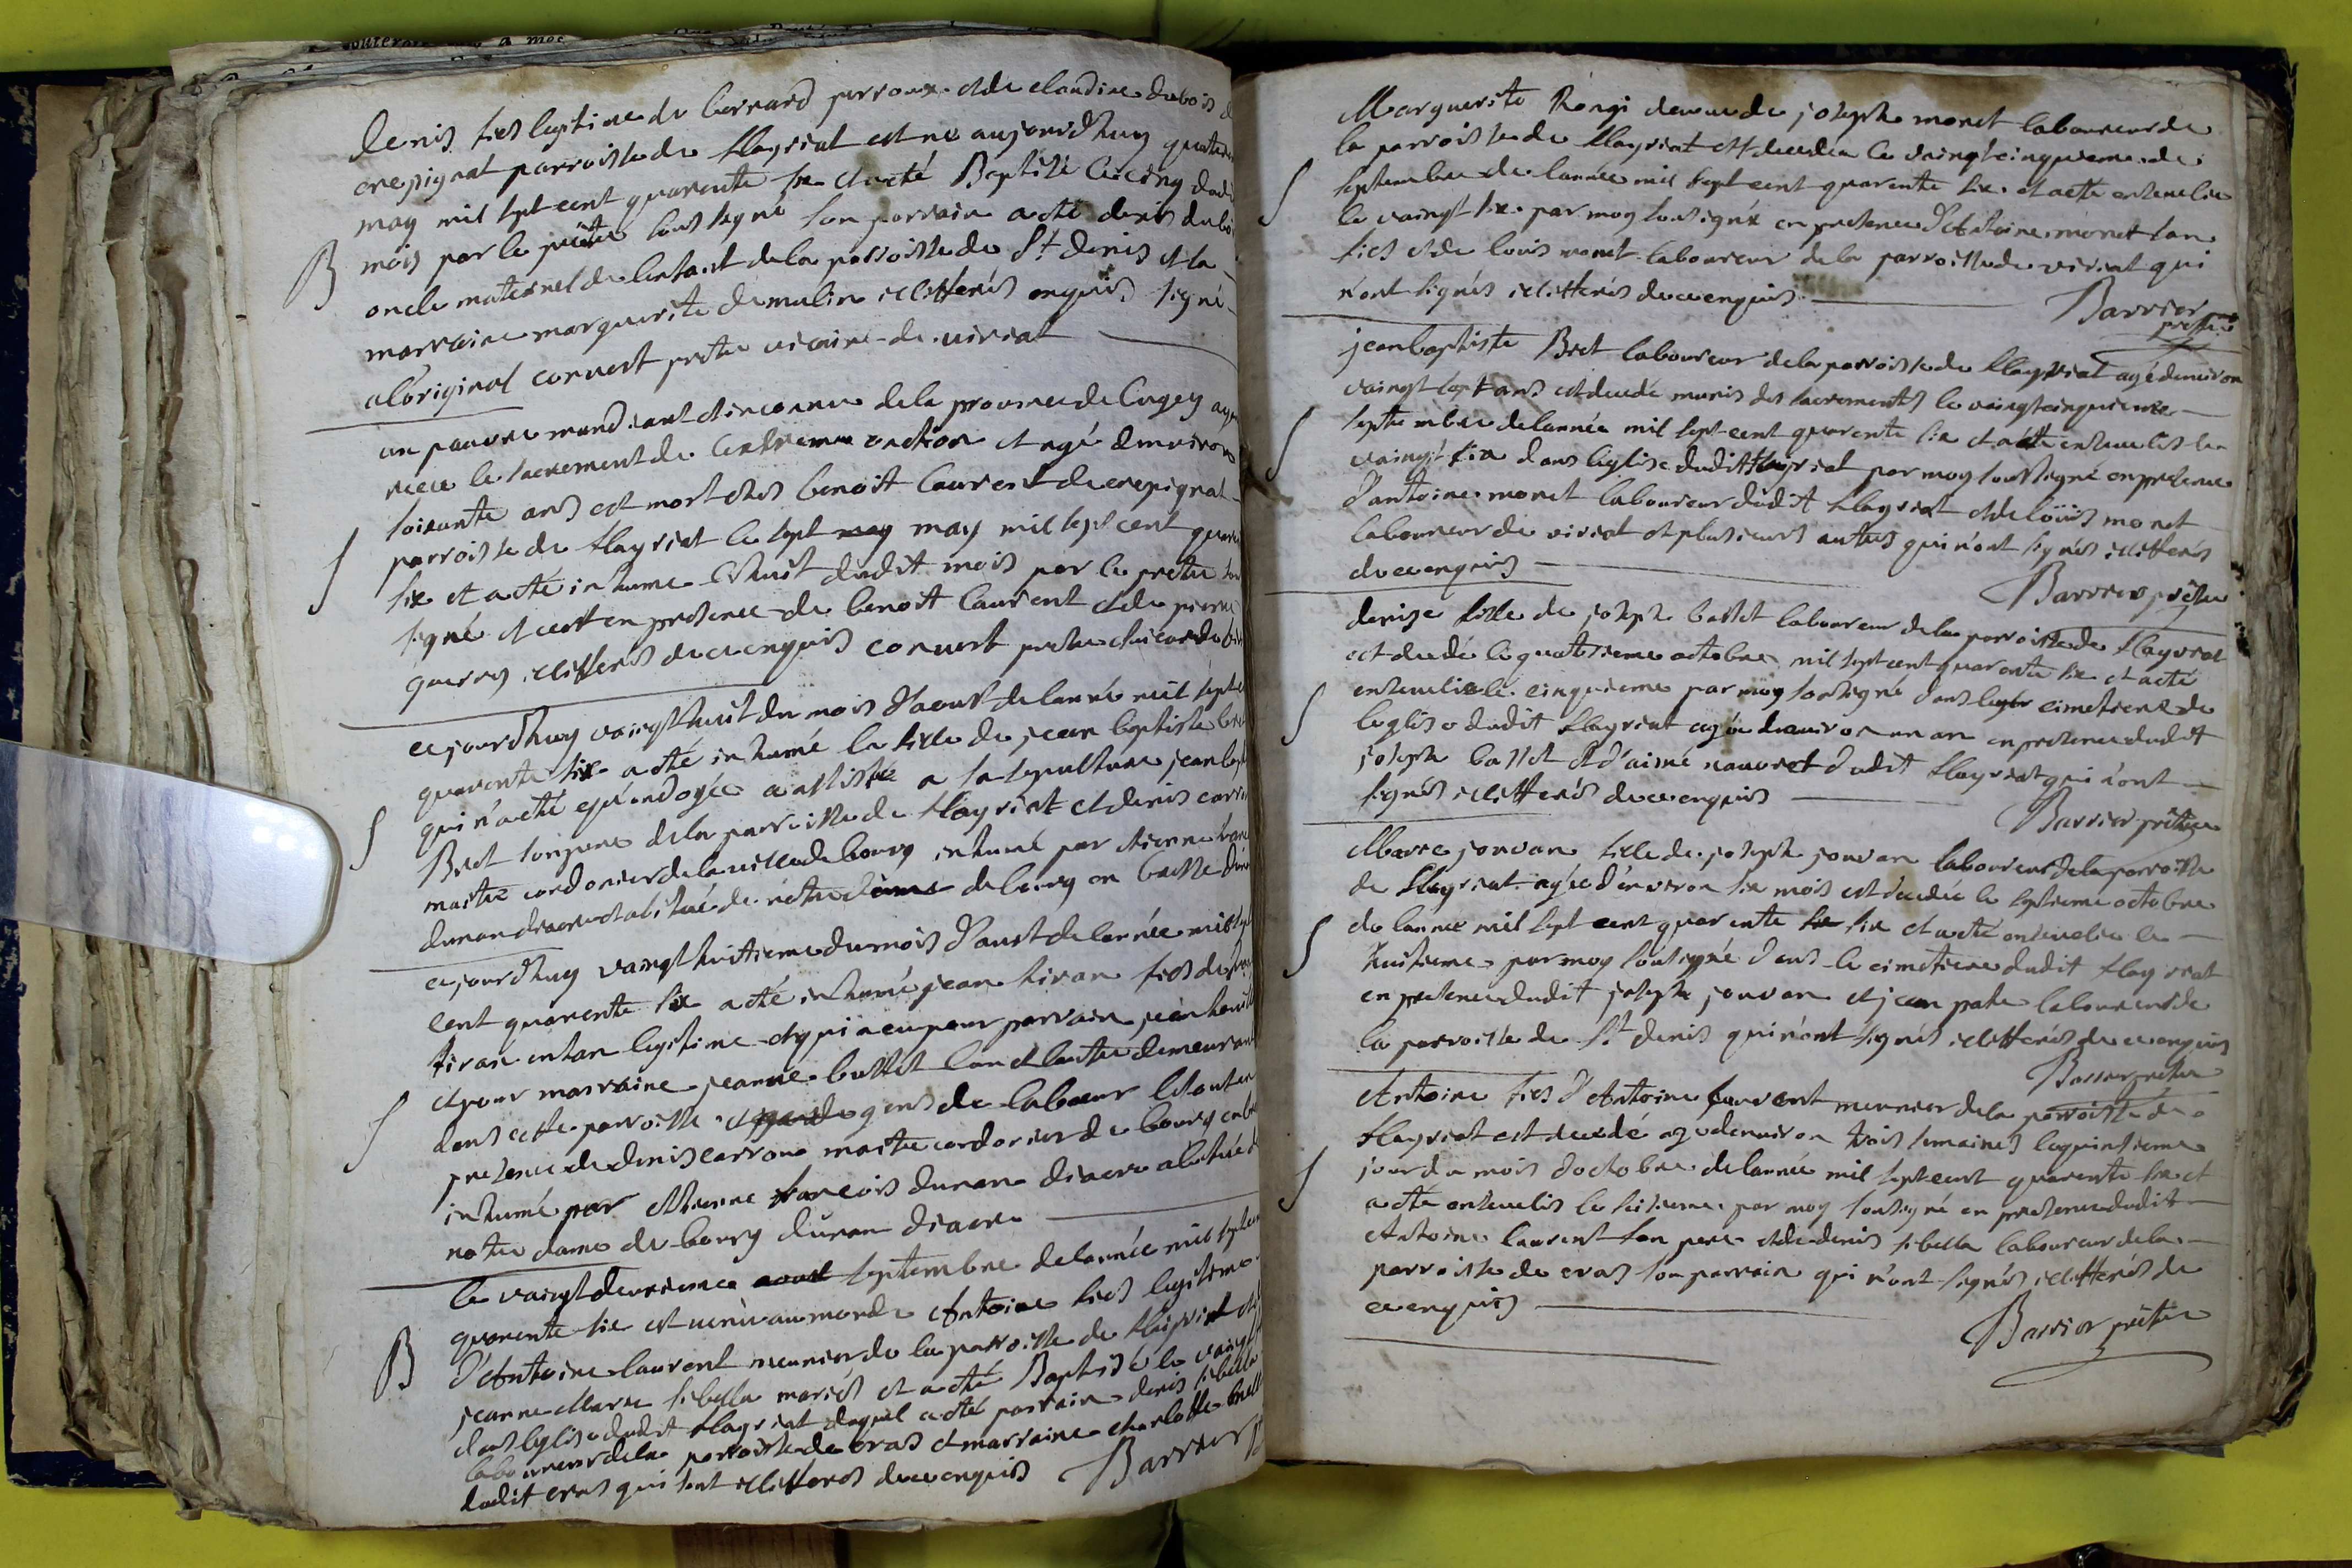 Denis fies legitime de bernard perroux et de claudine dubois d
crepignat parroisse de flayriat est ne aujourdhuy quatre
may mil sept cent quarente six et a eté Baptisé le cinq dudi
mois par le prètre sous signé son parrain a eté denis dubo
B
oncle maternel de lenfant de la parroisse de St denis et la
marraine marguerite demulin illitterés enquis signé
a l'original convert pretre vicaire de viriat
un pauvre mandiant et inconnu de la province de bugey aya
recu le sacrement de lextreme onction et agé denviron
soixante ans est mort chés benoit laurent de crepignat
S
parroisse de flayriat le sept may may mil sept cent quare
six et a eté inhumé le huit dudit mois par le pretre sou
signé et cest en presence de benoit laurent et de pierre
guerrey illitterés de ce enquis convert pretre
cejourdhuy vaingt huit du mois d'aoust de lannée mil sept
quarente six a eté inhumé la fille de jean baptiste bret
qui n'a eté qu'endoyée a assisté a sa sepulture jean bapt
S
Bret son pere de la parroisse de flayriat et denis carro
maitre cordonier de la ville de bourg inhumé par etienne franc
duran diacre et abitué de nôtre dame de bourg en bresse
cejourdhuy vaingt huitieme du mois d'aust de lannée mil sept
cent quarente six a eté inhumé jean tiran fies de
tiran enfan legitime et qui a eu pour parrain jean
et pour marraine jeanne buttet l'un et lautre demeurant
S
dans cette parroisse et gens de gens de labeur le tout en
presence de denis carron maitre cordonier de bourg
inhumé par ethienne francois duran diacre abitué d
notre dame de bourg duran diacre
le vaingt deuxieme aoust septembre de lannée mil sept cen
quarente six est venu au monde Antoine fies legitime
B
d'Antoine laurent meunier de la parroisse de flayriat et de
jeanne Marie sibella mariés et a eté Baptisé le vaingt
dans leglise dudit flayriat duquel a eté parrain denis sibella
laboureur de la parroisse de cras et marraine charlotte
dudit cras qui sont illitterés de ce enquis Barrier
Marguerite Rongi demeude joseph monet laboureur de
la parroisse de flayriat est decedea le vaingt cinquieme de
S
septembre de lannée mil sept cent quarente six et a eté ensevelie
le vaingt six par moy soussigné en presence d'Antoine monet son
fies et de louis monet laboureur de la parroisse de viriat qui
n'ont signés illitterés de ce enquis
Barrier
prêtre
jean baptiste Bret laboureur de la parroisse de flayriat agé denviron
vaingt sept ans est decedé munis des sacrements le vaingt cinquieme
S
septembre de lannée mil sept cent quarente six et a eté ensevelis le
vaingt six dans leglise dudit flayriat par moy soussigné en presence
d'antoine monet laboureur dudit flayriat et de loüis monet
laboureur de viriat et plusieurs autres qui n'ont signés illitterés
de ce enquis
Barrier prêtre
denise fille de joseph basset laboureur de la parroisse de flayriat
est decedé le quatrieme octobre mil sept cent quarente six et a eté
ensevelie le cinquieme par moy soussigné dans le cimetiere de
S
leglise dudit flayriat agée denviron un an en presence dudit
joseph basset et d'aimé nauvret dudit flayriat qui n'ont
signés illitterés de ce enquis
Barrier prêtre
Marie jouvan fille de joseph jouvan laboureur de la parroisse
de flayriat agée d'environ six mois est decedée le septieme octobre
de lannee mil sept cent quarente six six et a eté ensevelie le
S
huitieme par moy soussigné dans le cimetiere dudit flayriat
en presence dudit joseph jouvan et jean pate laboureur de
la parroisse de St denis qui n'ont signés illitterés de ce enquis
Barrier pretre
Antoine fies d'Antoine laurent meunier de la parroisse de
flayriat est decedé agé denviron trois semaines le quinsieme
S
jour du mois d'octobre de lannée mil sept cent quarente six et
a eté ensevelis le sisieme par moy soussigné en presence dudit
Antoine laurent son pere et de denis sibella laboureur de la
parroisse de cras son parrain qui n'ont signés illitterés de
ce enquis
Barrier prêtre